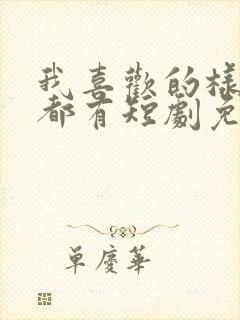 我喜歡的樣
都有短劇免
單慶華